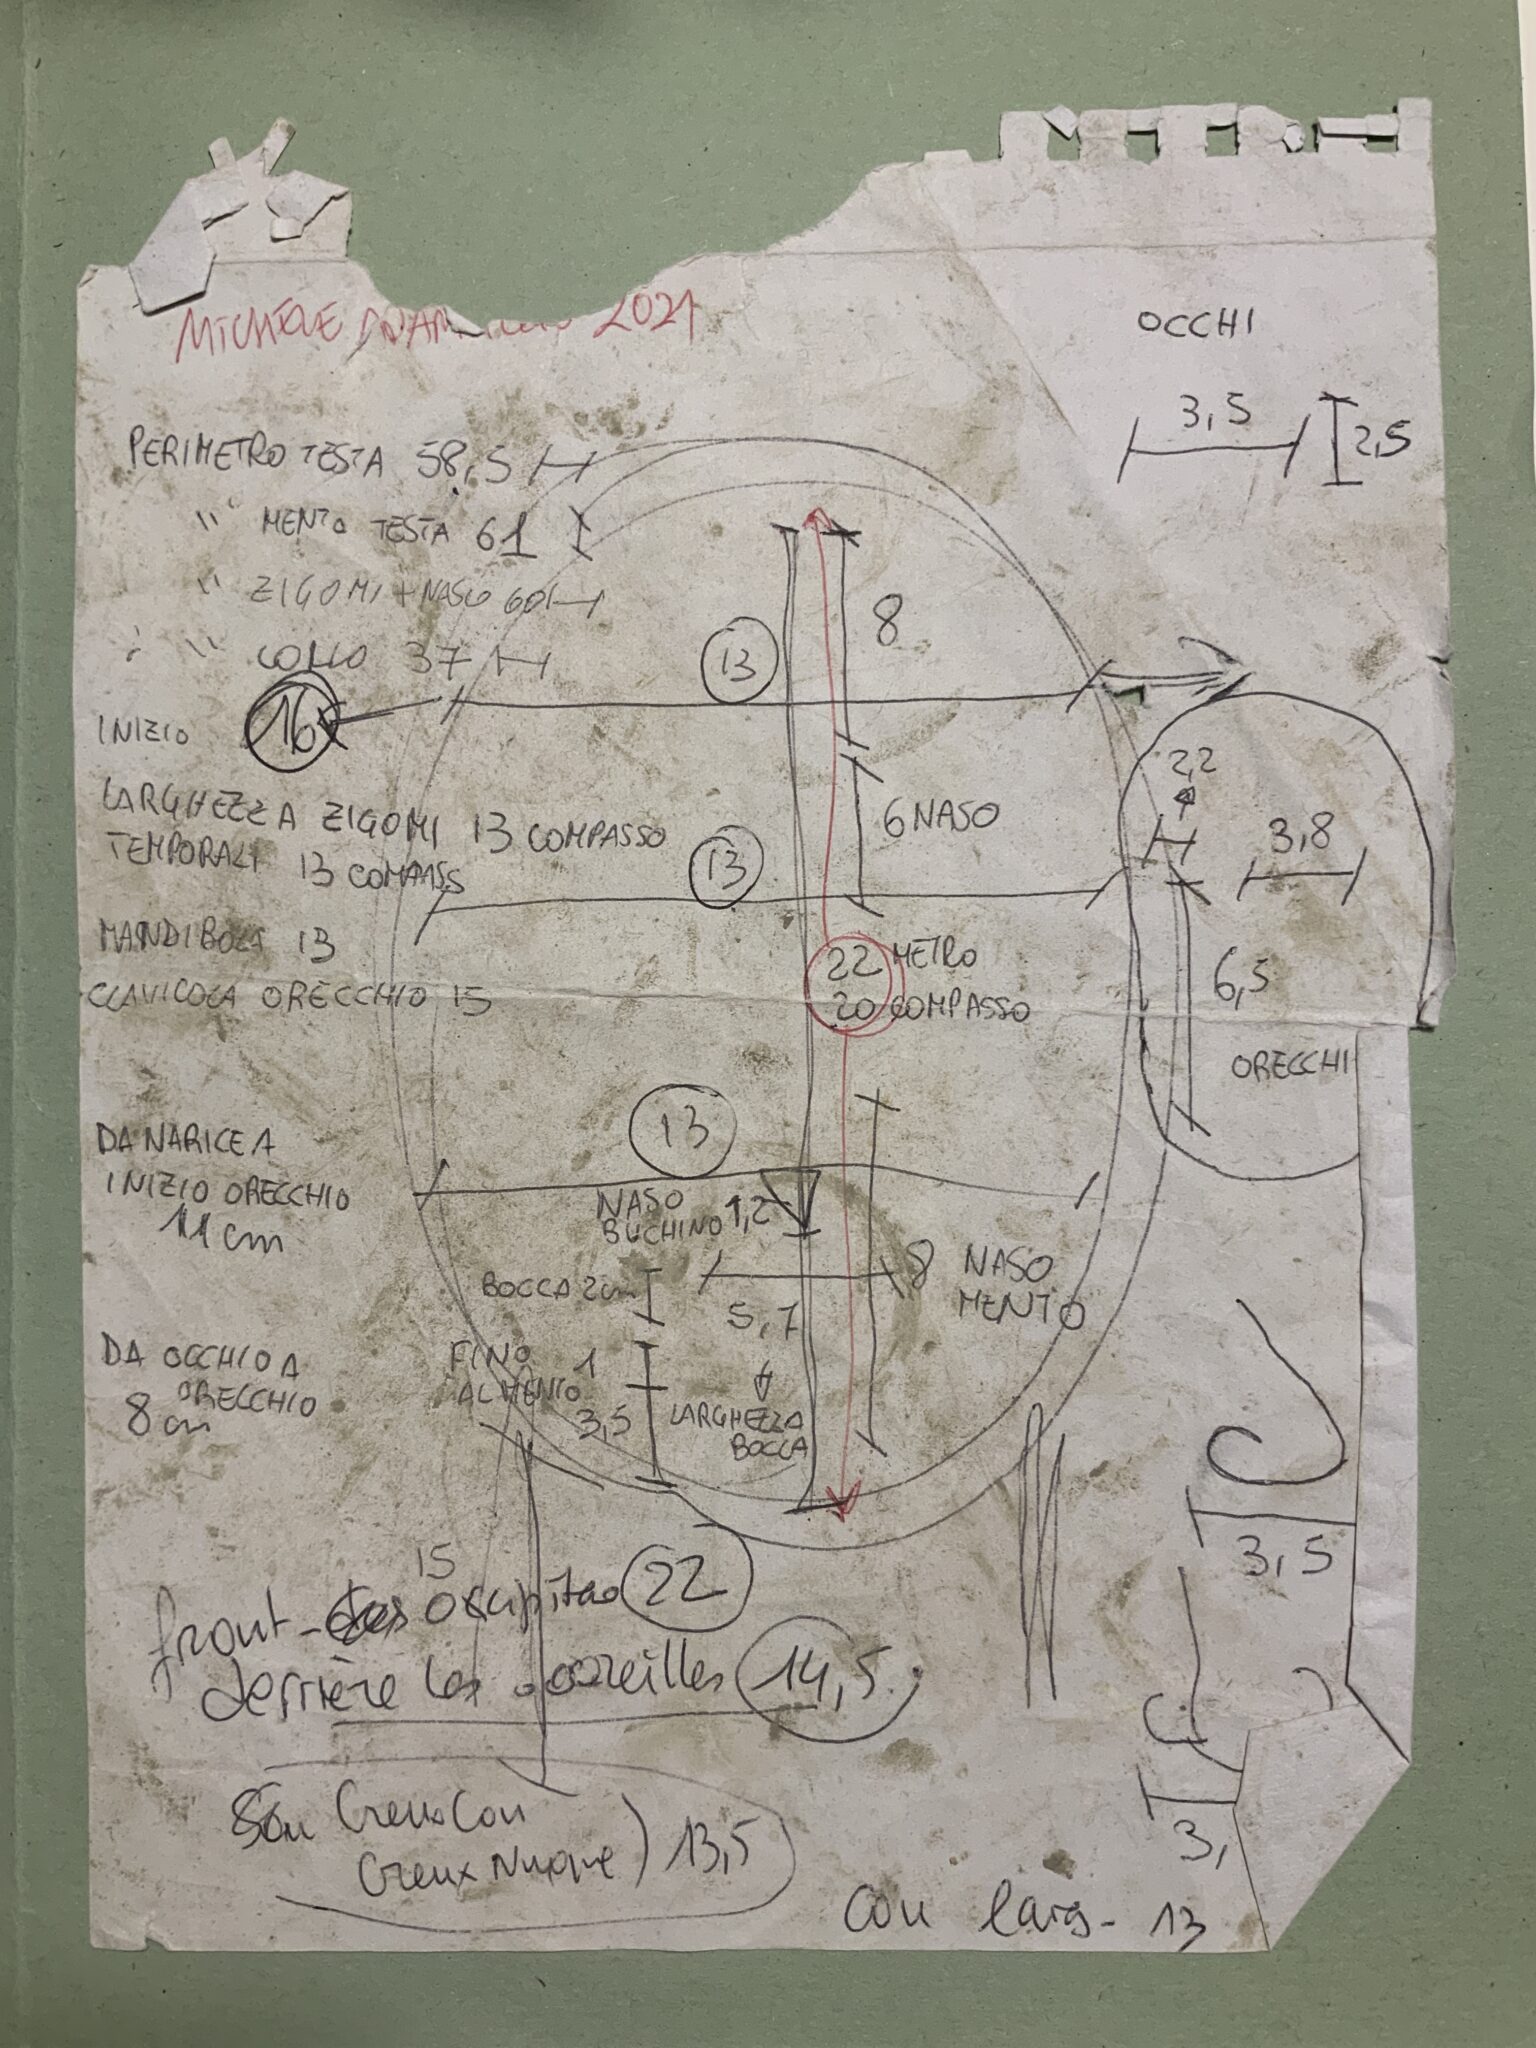 MICHELE 2021
OCCHI
3,5
2,5
PERIMETRO TESTA 58,5
" MENTO TESTA 61
" ZIGOMI + NASO 60
" COLLO 37
8
13
INIZIO 16
2,2
LARGHEZZA ZIGOMI 13 COMPASSO
TEMPORALI 13 COMPASS
6 NASO
3,8
13
MANDIBOLA 13
CLAVICOLA ORECCHIO 15
22 METRO
20 COMPASSO
6,5
ORECCHI
DA NARICE A
INIZIO ORECCHIO
11 cm
13
NASO
BUCHINO 1,2
BOCCA 2cm
5,7
8 NASO
MENTO
DA OCCHIO A
ORECCHIO
8 cm
FINO 1
AL MENTO
3,5
LARGHEZZA
BOCCA
3,5
15
front - 22
derrière les oreilles 14,5
Creux Nuque) 13,5
3,
Cou larg - 13